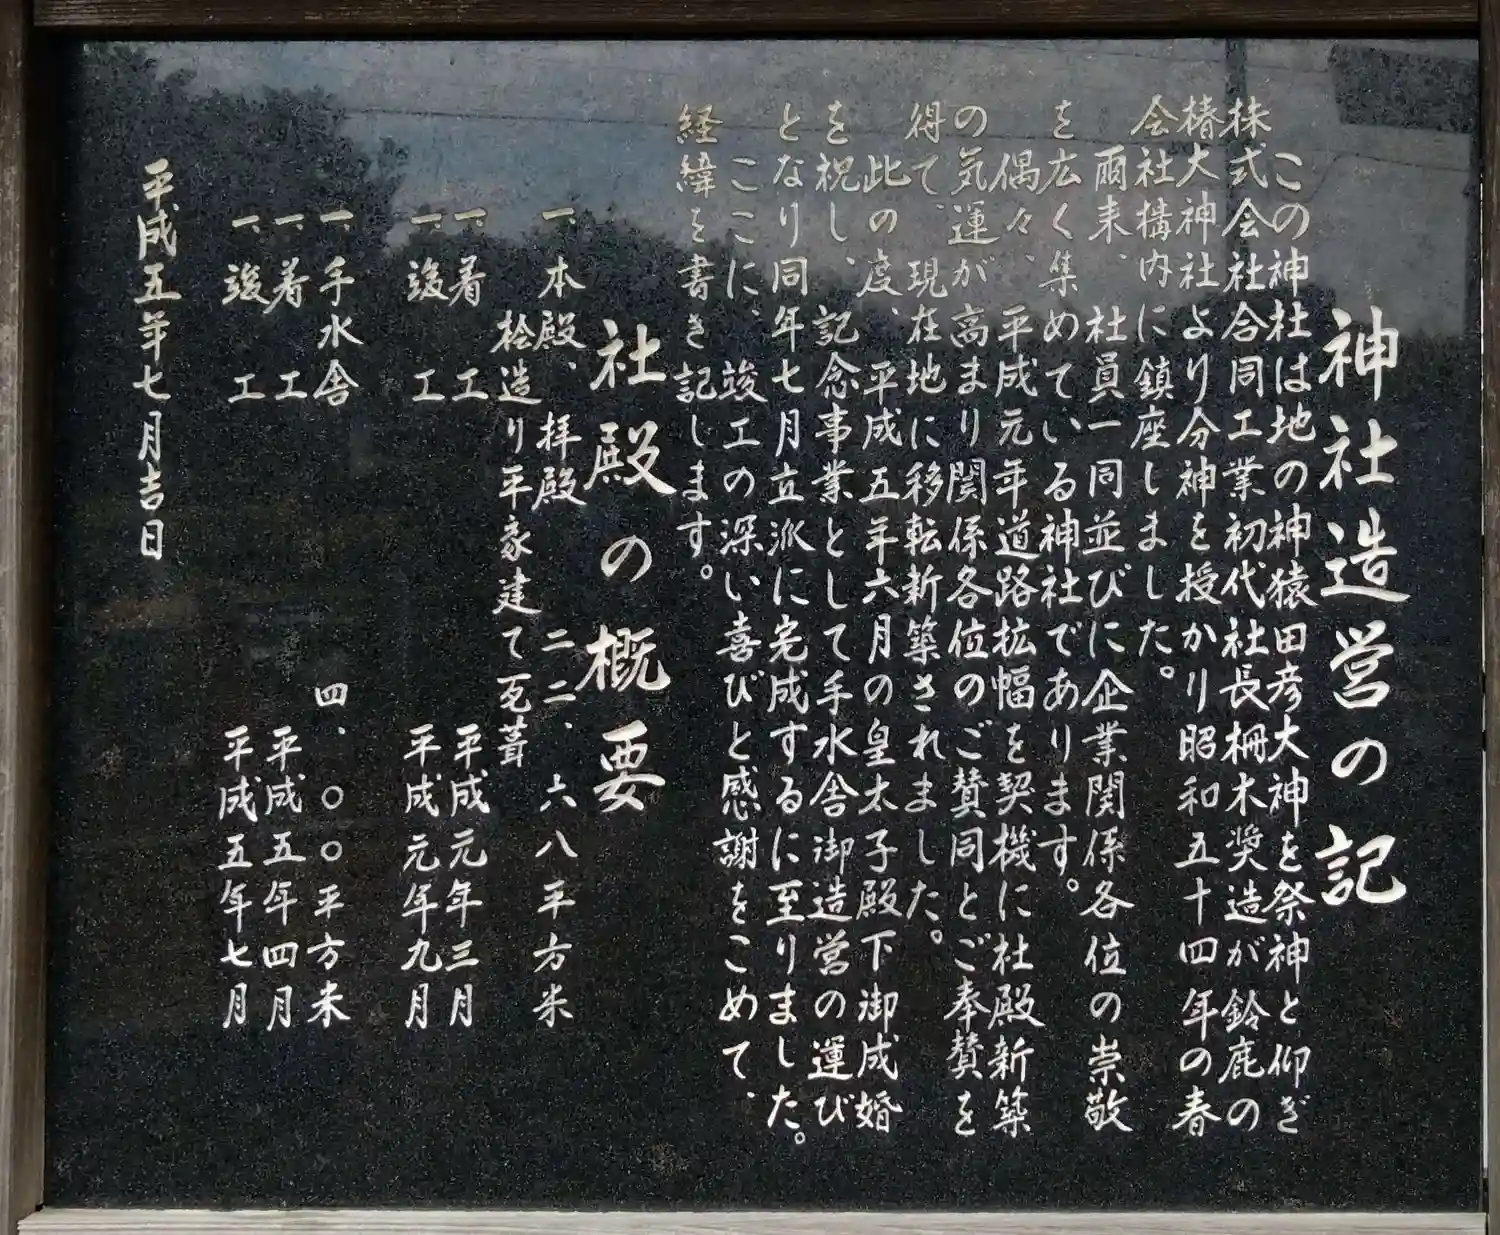 神社造営の記
この神社は地の神猿田彦大神を祭神と仰ぎ
株式会社合同工業初代社長柵木奨造が鈴鹿の
椿大神社より分神を授かり昭和五十四年の春
会社構内に鎮座しました。
爾来、社員一同並びに企業関係各位の崇敬
を広く集めている神社であります。
偶々、平成元年道路拡幅を契機に社殿新築
の気運が高まり関係各位のご賛同とご奉賛を
得て、現在地に移転新築されました。
此の度、平成五年六月の皇太子殿下御成婚
を祝し、記念事業として手水舎御造営の運び
となり同年七月立派に完成するに至りました。
ここに、竣工の深い喜びと感謝をこめて、
経緯を書き記します。
社殿の概要
一、本殿、拝殿 二二、六八平方米
桧造り平家建て瓦葺
一、着工 平成元年三月
一、竣工 平成元年九月
一、手水舎 四、〇〇平方米
一、着工 平成五年四月
一、竣工 平成五年七月
平成五年七月吉日